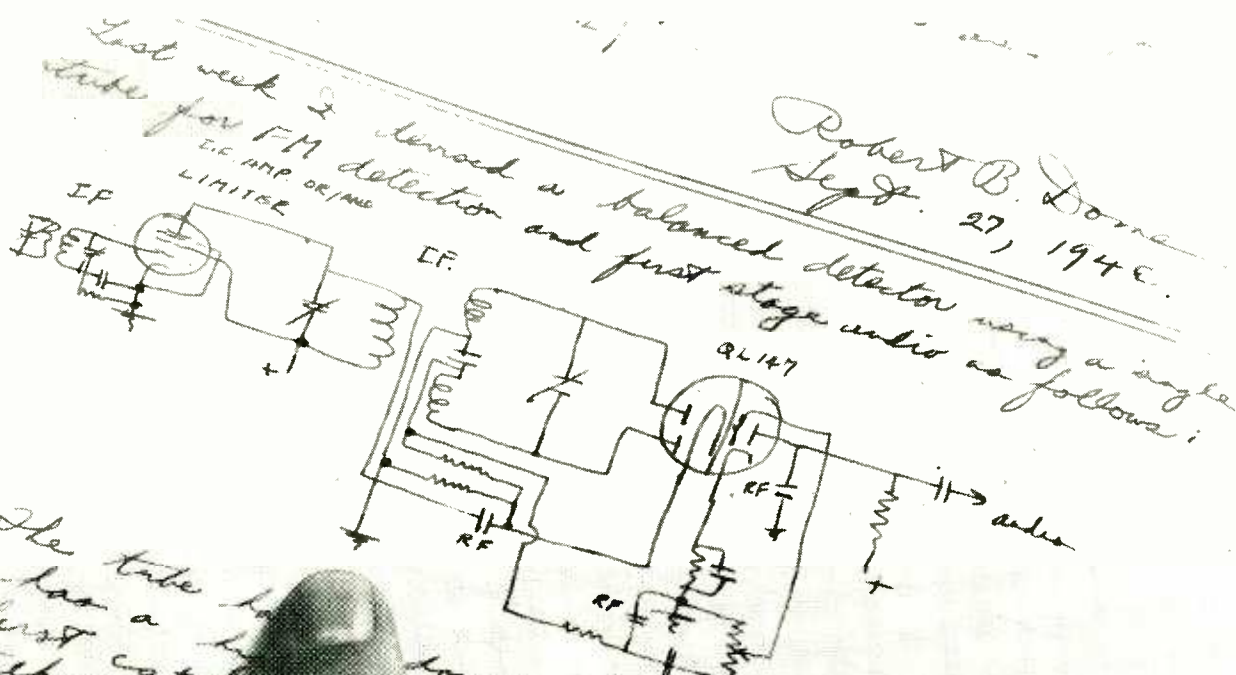 Robert B. Dome
Sept. 27, 194
Last week I devised a balanced detector using a single
tube for FM detection and first stage audio as follows:
I.F. AMP. OR/AND
LIMITER
IF
I.F.
QL147
RF
audio
RF
RF
+
+
The tube
has a
first